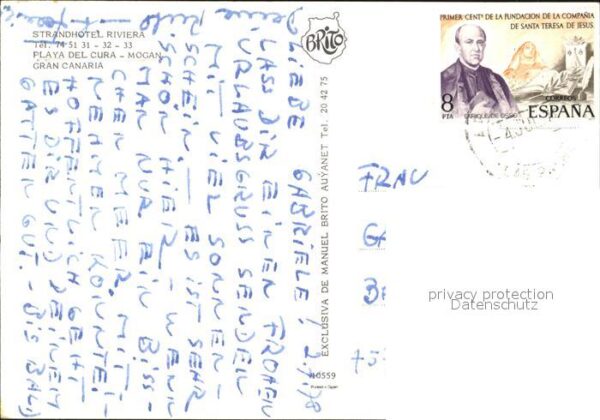 STRANDHOTEL RIVIERA
Tel. 74 51 31 - 32 - 33
PLAYA DEL CURA - MOGAN
GRAN CANARIA
BRITO
EXCLUSIVA DE MANUEL BRITO AUYANET Tel. 20 42 75
10559
Printed in Spain
2.1.78
LIEBE GABRIELE!
LASS DIR EINEN FROHEN
URLAUBSGRUSS SENDEN
MIT VIEL SONNEN-
SCHEIN. — ES IST SEHR
SCHÖN HIER — WENN
MAN NUR EIN BISS-
CHEN MEER MIT-
NEHMEN KÖNNTE!
HOFFENTLICH GEHT
ES DIR UND DEINEM
GATTEN GUT. - BIS BALD
PRIMER CENT° DE LA FUNDACION DE LA COMPAÑIA
DE SANTA TERESA DE JESUS.
8
PTA
ENRIQUE DE OSSO
CORREOS
ESPAÑA
FRAU
privacy protection
Datenschutz